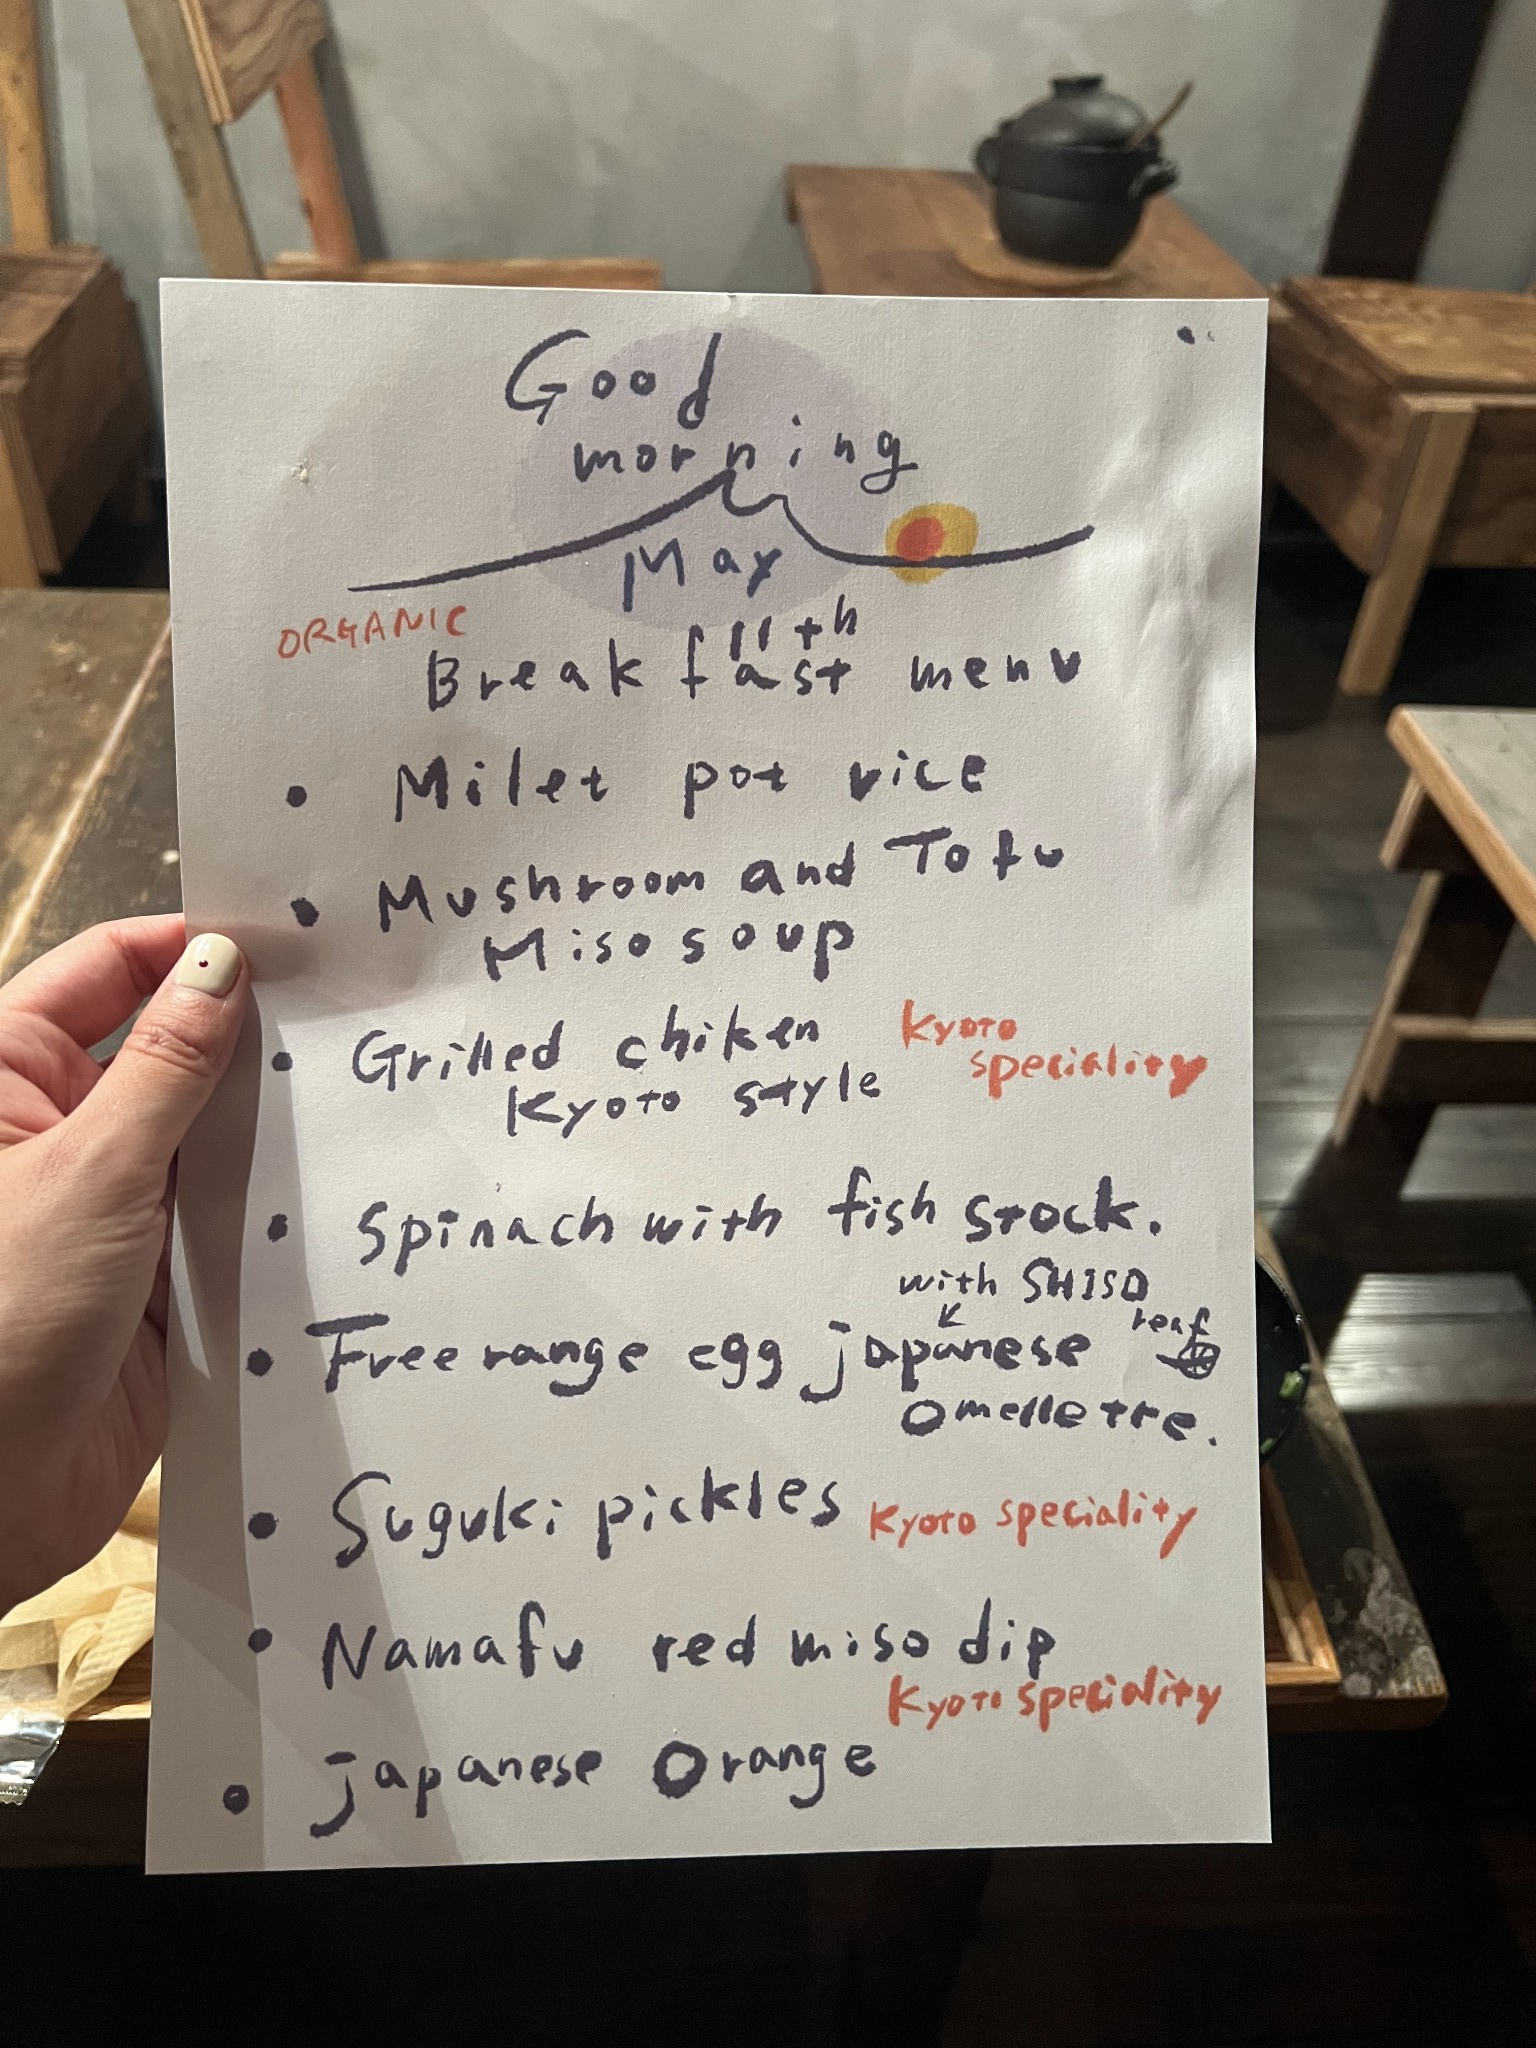 Good
morning
May
11th
ORGANIC
Breakfast menu
• Milet pot rice
• Mushroom and Tofu
Miso soup
• Grilled chiken
Kyoto style
Kyoto
speciality
• Spinach with fish stock.
with SHISO
leaf
• Free range egg japanese
omellette.
• Suguki pickles Kyoto speciality
• Namafu red miso dip
Kyoto speciality
• japanese Orange